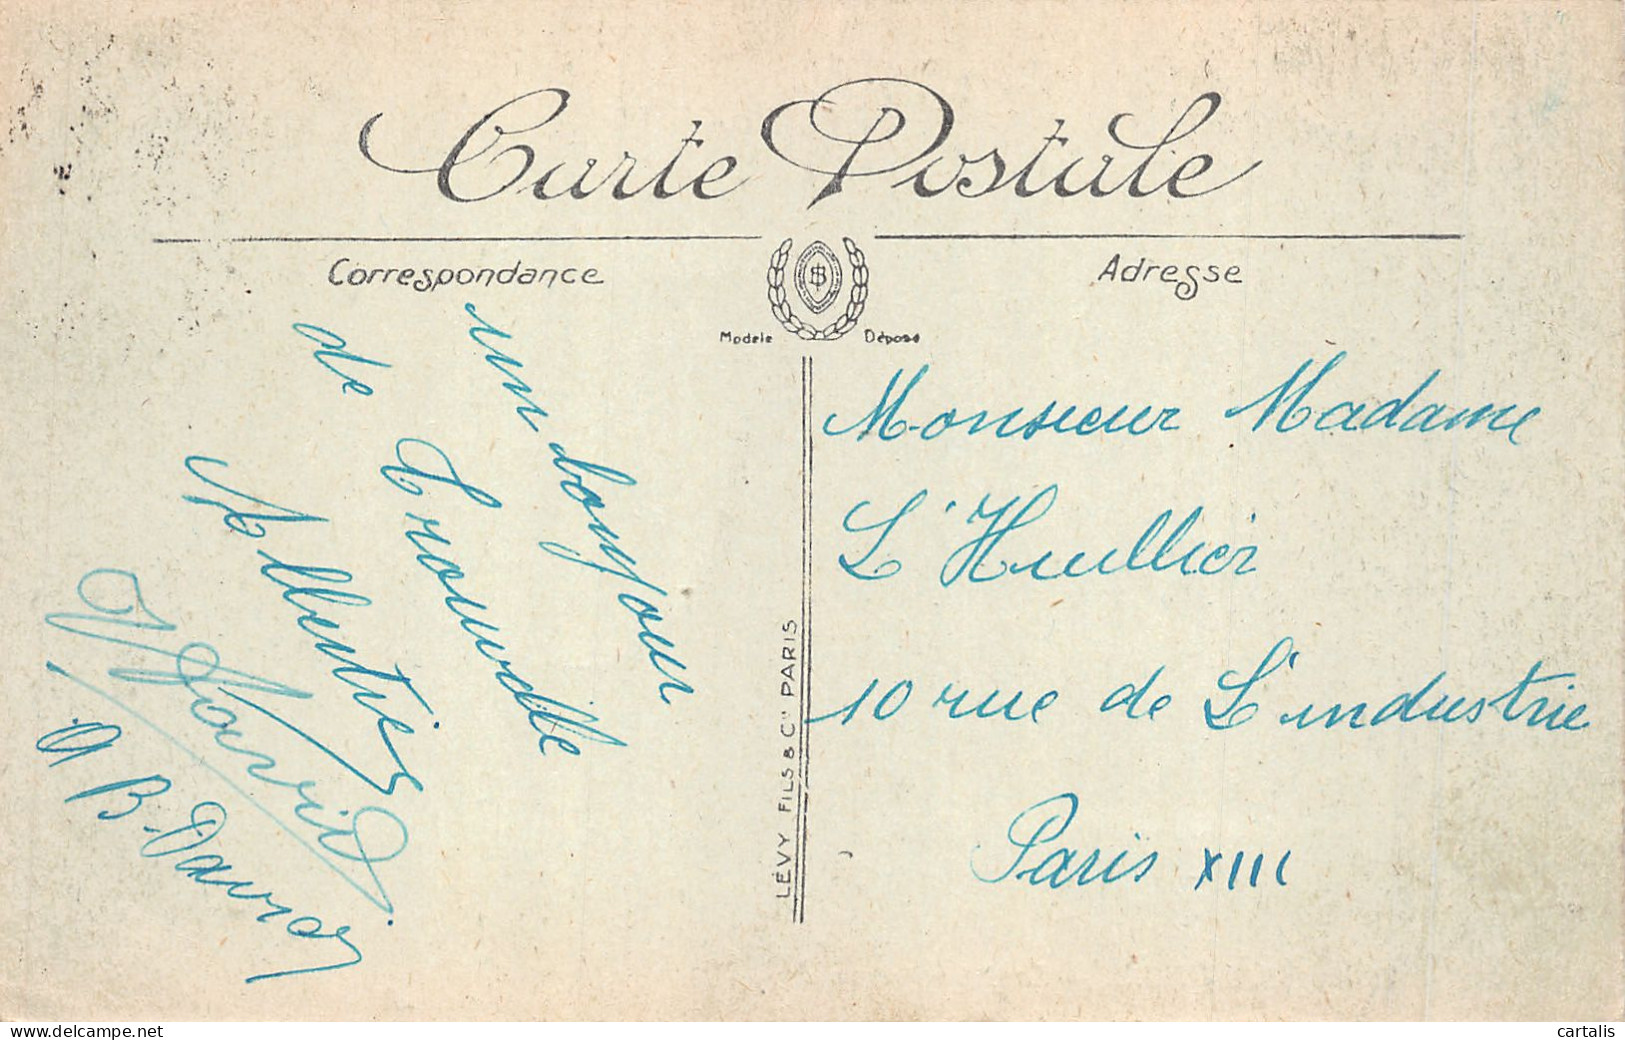 Carte Postale
Correspondance
Adresse
Modele Déposé
un bonjour
de Trouville
David
B. David
Monsieur Madame
L'Huillier
10 rue de L'industrie
Paris XIII
LÉVY FILS & Cie PARIS
www.delcampe.net
cartalis